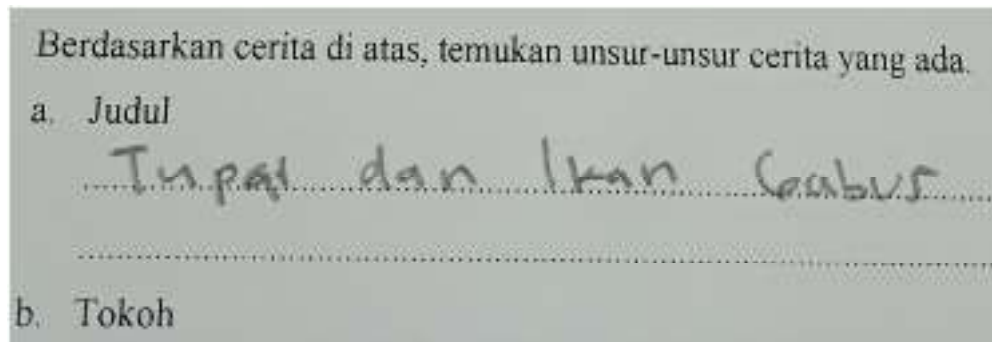 Berdasarkan cerita di atas, temukan unsur-unsur cerita yang ada.
a. Judul
Tupai dan Ikan Gabus
b. Tokoh